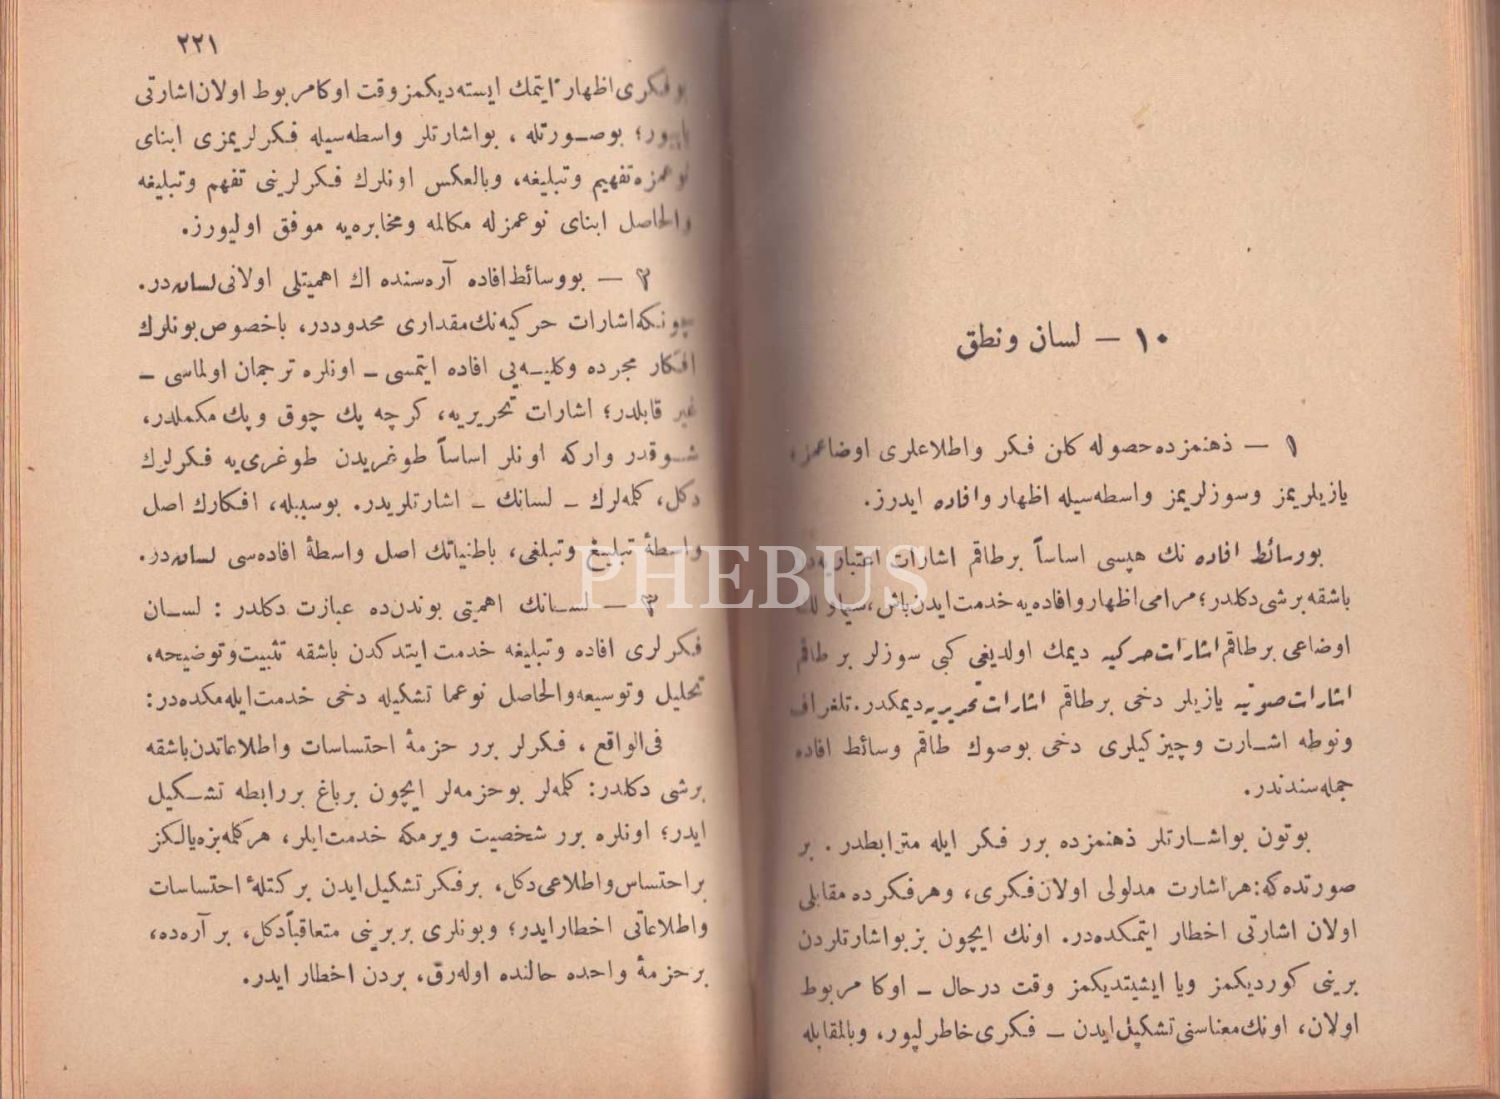 ١٠ — لسان و نطق
١ — ذهنمزده حصوله كلن فكر و اطلاعلرى اوضاعمز،
يازيلريمز وسوزلريمز واسطه‌سيله اظهار وافاده ايدرز.
بو وسائط افاده نك هپسى اساساً برطاقم اشارات اعتباريه‌دن
باشقه برشى دكلدر؛ مرامى اظهار وافاده‌يه خدمت ايدن باش،
اوضاعى برطاقم اشارات حركيه ديمك اولديغى كبى سوزلر برطاقم
اشارات صوتيه يازيلر دخى برطاقم اشارات تحريريه ديمكدر. تلغراف
ونوطه اشارت وچيزكيلرى دخى بوصوك طاقم وسائط افاده
جمله‌سندندر.
بوتون بواشارتلر ذهنمزده برر فكر ايله مترابطدر. بر
صورتده‌كه: هراشارت مدلولى اولان فكرى، وهرفكرده مقابلى
اولان اشارتى اخطار ايتمكده‌در. اونك ايچون بزبواشارتلردن
برينى كورديكمز ويا ايشيتديكمز وقت درحال — اوكا مربوط
اولان، اونك معناسنى تشكيل ايدن — فكرى خاطرليور، وبالمقابله
٢٢١
بوفكرى اظهار ايتمك ايسته‌ديكمز وقت اوكا مربوط اولان اشارتى
ياپيور؛ بوصورتله، بواشارتلر واسطه‌سيله فكرلريمزى ابناى
نوعمزه تفهيم وتبليغه، وبالعكس اونلرك فكرلرينى تفهم وتبليغه
والحاصل ابناى نوعمزله مكالمه ومخابره‌يه موفق اوليورز.
٢ — بووسائط افاده آره‌سنده اك اهميتلى اولانى لسان‌در.
چونكه اشارات حركيه‌نك مقدارى محدوددر، باخصوص بونلرك
افكار مجرده وكليه‌يى افاده ايتمسى — اونلره ترجمان اولماسى —
غير قابلدر؛ اشارات تحريريه، كرچه پك چوق وپك مكملدر،
شوقدر واركه اونلر اساساً طوغريدن طوغرى‌يه فكرلرك
دكل، كلمه‌لرك — لسانك — اشارتلريدر. بوسببله، افكارك اصل
واسطهٔ تبليغ وتبلغى، باطنياتك اصل واسطهٔ افاده‌سى لسان‌در.
٣ — لسانك اهميتى بوندن‌ده عبارت دكلدر : لسان
فكرلرى افاده وتبليغه خدمت ايتدكدن باشقه تثبيت وتوضيحه،
تحليل وتوسيعه والحاصل نوعما تشكيله دخى خدمت ايله‌مكده‌در:
فى‌الواقع، فكرلر برر حزمهٔ احتساسات واطلاعاتدن باشقه
برشى دكلدر: كلمه‌لر بوحزمه‌لر ايچون برباغ بررابطه تشكيل
ايدر؛ اونلره برر شخصيت ويرمكه خدمت ايلر، هركلمه بزه يالكز
براحتساس واطلاعى دكل، برفكر تشكيل ايدن بركتلهٔ احتساسات
واطلاعاتى اخطار ايدر؛ وبونلرى بربرينى متعاقباً دكل، برآره‌ده،
برحزمهٔ واحده حالنده اوله‌رق، بردن اخطار ايدر.
PHEBUS